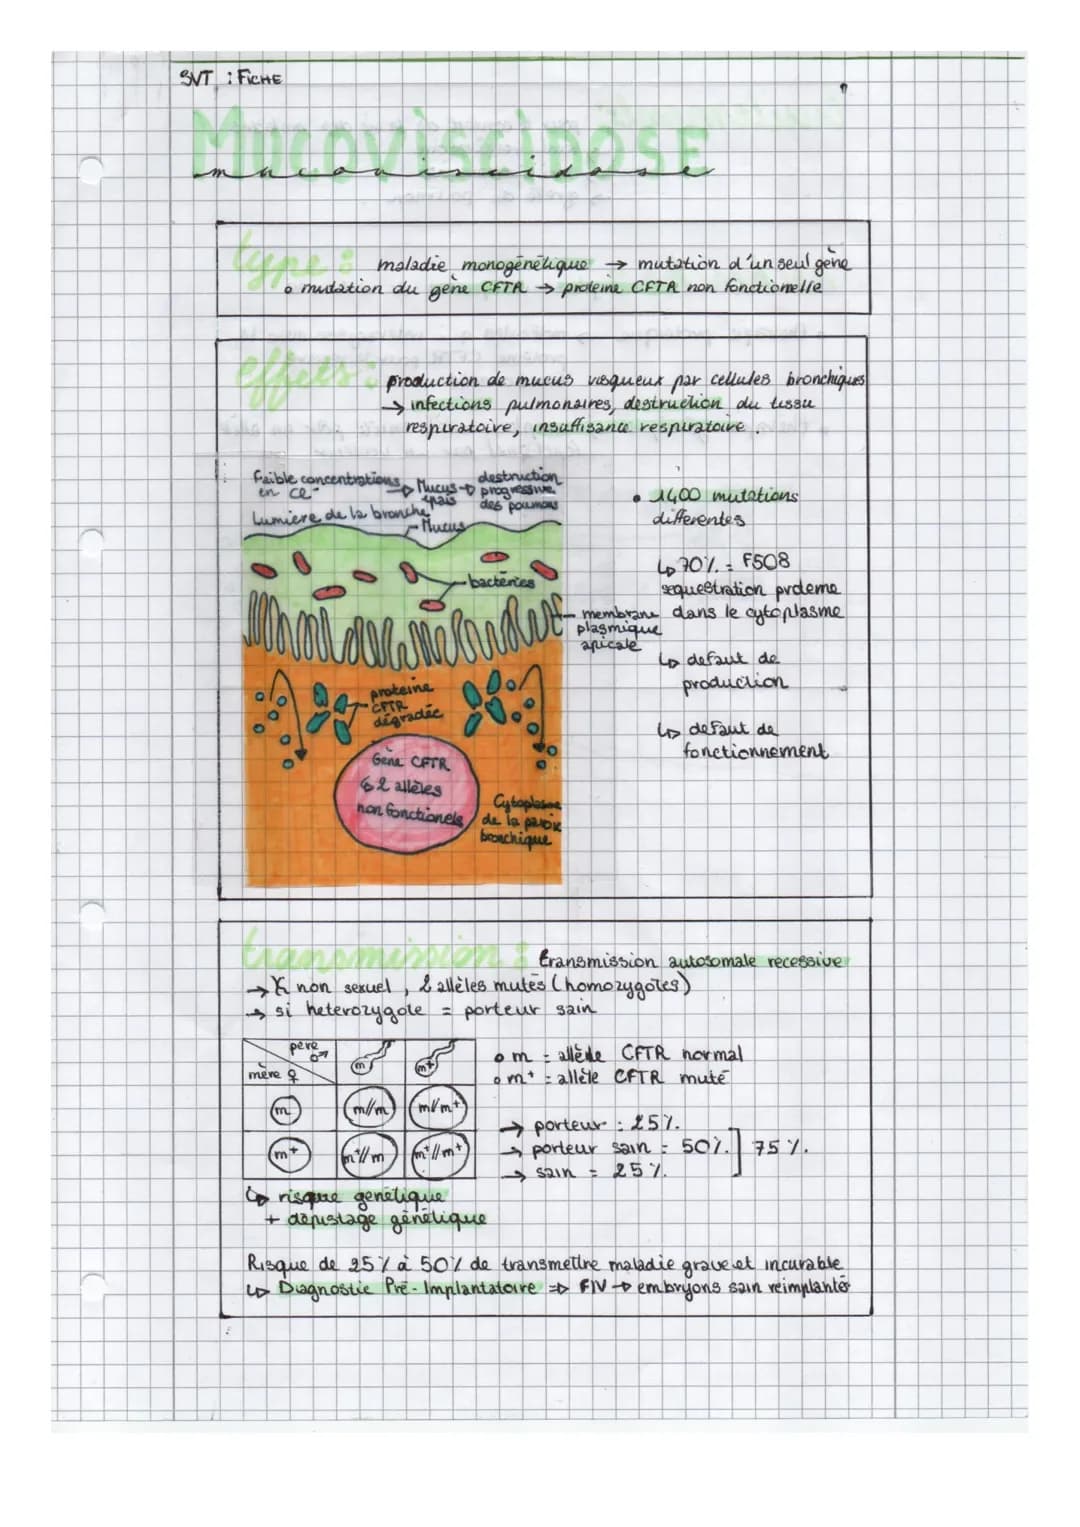 SVT : FICHE
MUCOVISCIDOSE
mucoviscidose
type : maladie monogénétique → mutation d'un seul gène
• mutation du gène CFTR → proteine CFTR non fonctionelle
effets : production de mucus visqueux par cellules bronchiques
→ infections pulmonaires, destruction du tissu
respiratoire, insuffisance respiratoire.
Faible concentrations en Cl⁻ → Mucus épais → destruction progressive des poumons
Lumière de la bronche
Mucus
bactéries
membrane
plasmique
apicale
proteine
CFTR
dégradée
Gène CFTR
↳ 2 allèles
non fonctionels
Cytoplasme
de la paroi
bronchique
• 1400 mutations
differentes
↳ 70% = F508
sequestration proteine
dans le cytoplasme
↳ defaut de
production
↳ defaut de
fonctionnement
transmission : transmission autosomale recessive
→ K non sexuel, 2 allèles mutés (homozygotes)
→ si heterozygote = porteur sain
père ♂
mère ♀
m
m+
m
m//m
m//m+
m+
m+//m
m+//m+
• m = allèle CFTR normal
• m+ = allèle CFTR muté
→ porteur : 25%.
→ porteur sain = 50%. ] 75%.
→ sain = 25%.
↳ risque genétique
+ dépistage génétique
Risque de 25% à 50% de transmettre maladie grave et incurable
↳ Diagnostic Pré-Implantatoire ⇒ FIV → embryons sain réimplanté